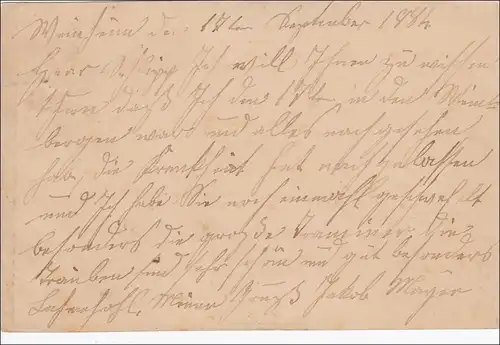 den 17ten September 1884
Herr Ich will Ihnen zu wissen
thun daß Ich den 17ten in den Wein-
bergen war und alles nachgesehen
hab, die Krankheit hat nachgelassen
und Ich habe Sie noch einmahl geschwefelt
besonders die große Traminer. Die
Trauben sind sehr schön und gut besonders
Gruß Jakob Mayer